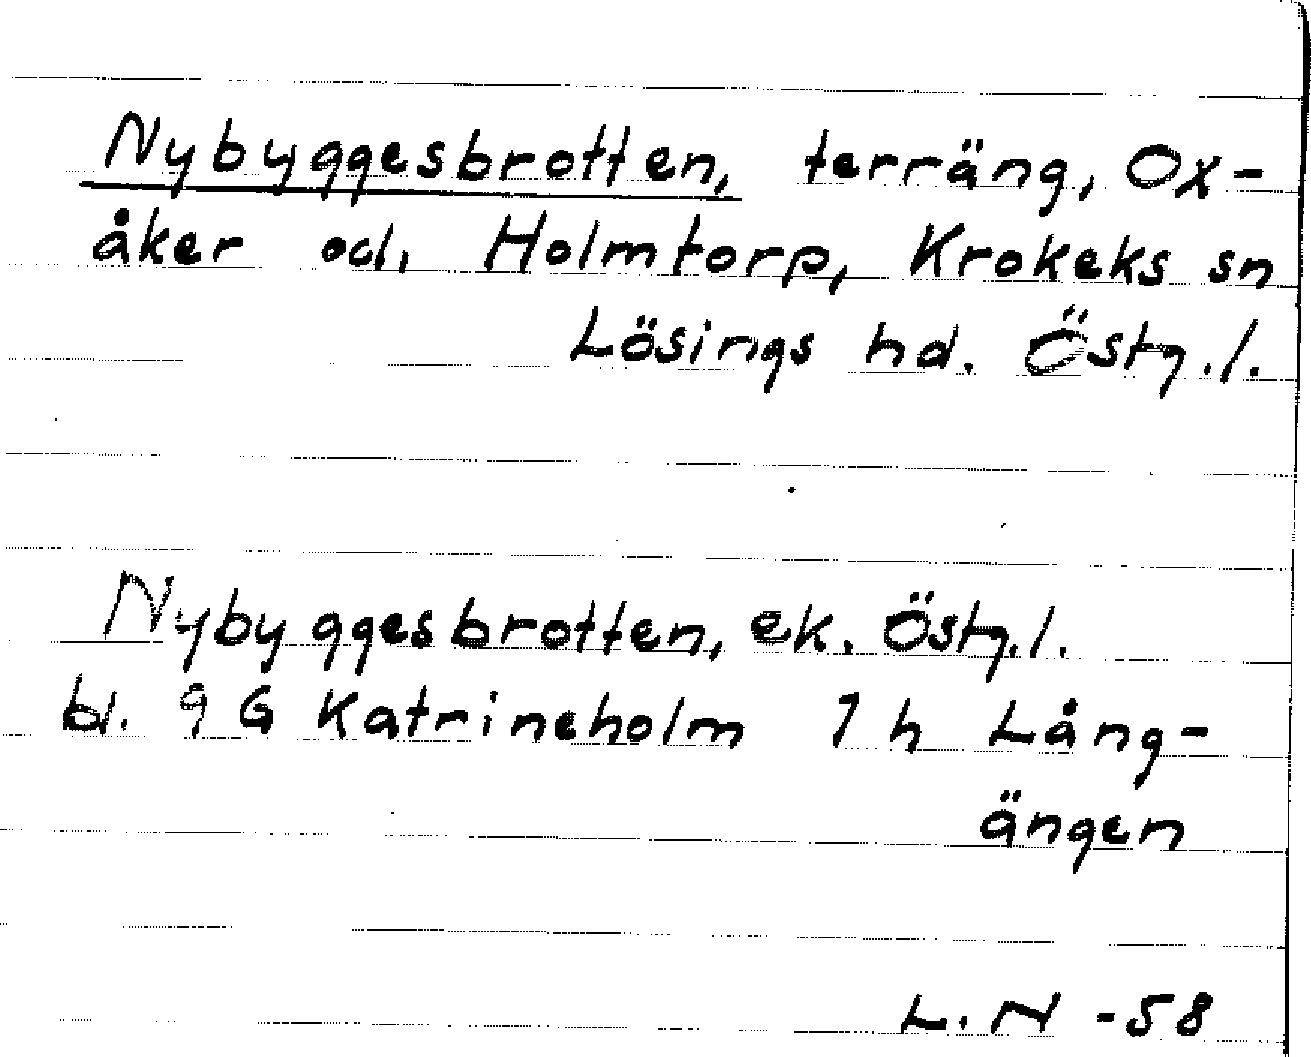 Nybyggesbrotten, terräng, Ox-
åker och Holmtorp, Krokeks sn
Lösings hd. Östg.l.
Nybyggesbrotten, ek. Östg.l.
bl. 9 G Katrineholm 1 h Lång-
ängen
L. N -58